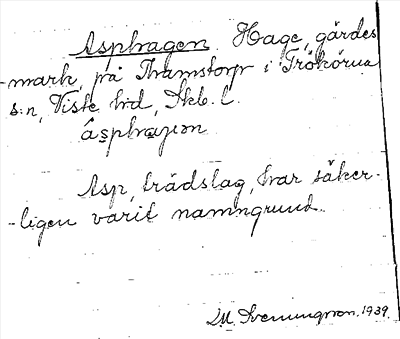 Asphagen. Hage, gärdes
-mark, på Thamstorp i Trökörna
s:n, Viste hd, Skb. l.
Asp, trädslag, har säker-
-ligen varit namngrund.
L.M. Svenungsson. 1939.